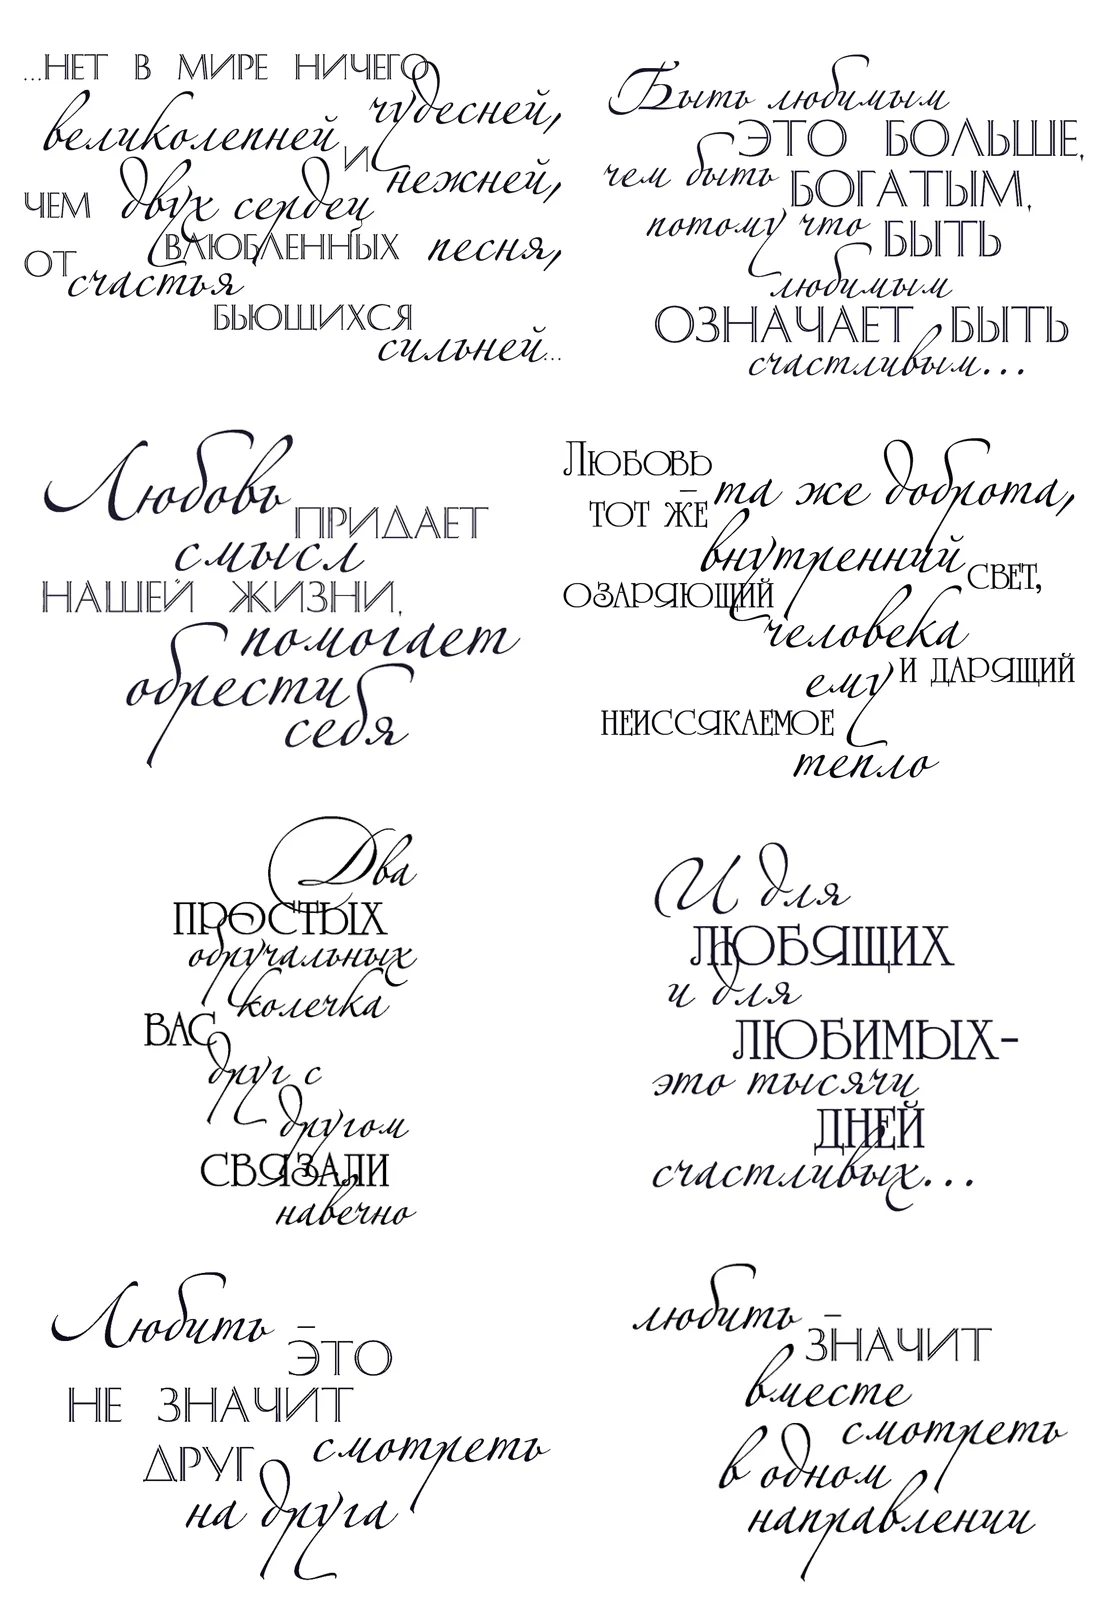 ...НЕТ В МИРЕ НИЧЕГО
чудесней,
великолепней И
нежней,
ЧЕМ двух сердец
ВЛЮБЛЕННЫХ песня,
ОТ счастья
БЬЮЩИХСЯ
сильней...
Быть любимым
ЭТО БОЛЬШЕ,
чем быть БОГАТЫМ,
потому что БЫТЬ
любимым
ОЗНАЧАЕТ БЫТЬ
счастливым...
Любовь
ПРИДАЕТ
смысл
НАШЕЙ ЖИЗНИ,
помогает
обрести
себя
ЛЮБОВЬ –
та же доброта,
ТОТ ЖЕ
внутренний СВЕТ,
ОЗАРЯЮЩИЙ
человека
И ДАРЯЩИЙ
ему
НЕИССЯКАЕМОЕ
тепло
Два
ПРОСТЫХ
обручальных
колечка
ВАС
друг с
другом
СВЯЗАЛИ
навечно
И для
ЛЮБЯЩИХ
и для
ЛЮБИМЫХ-
это тысячи
ДНЕЙ
счастливых...
Любить –
ЭТО
НЕ ЗНАЧИТ
смотреть
ДРУГ
на друга
любить –
ЗНАЧИТ
вместе
смотреть
в одном
направлении